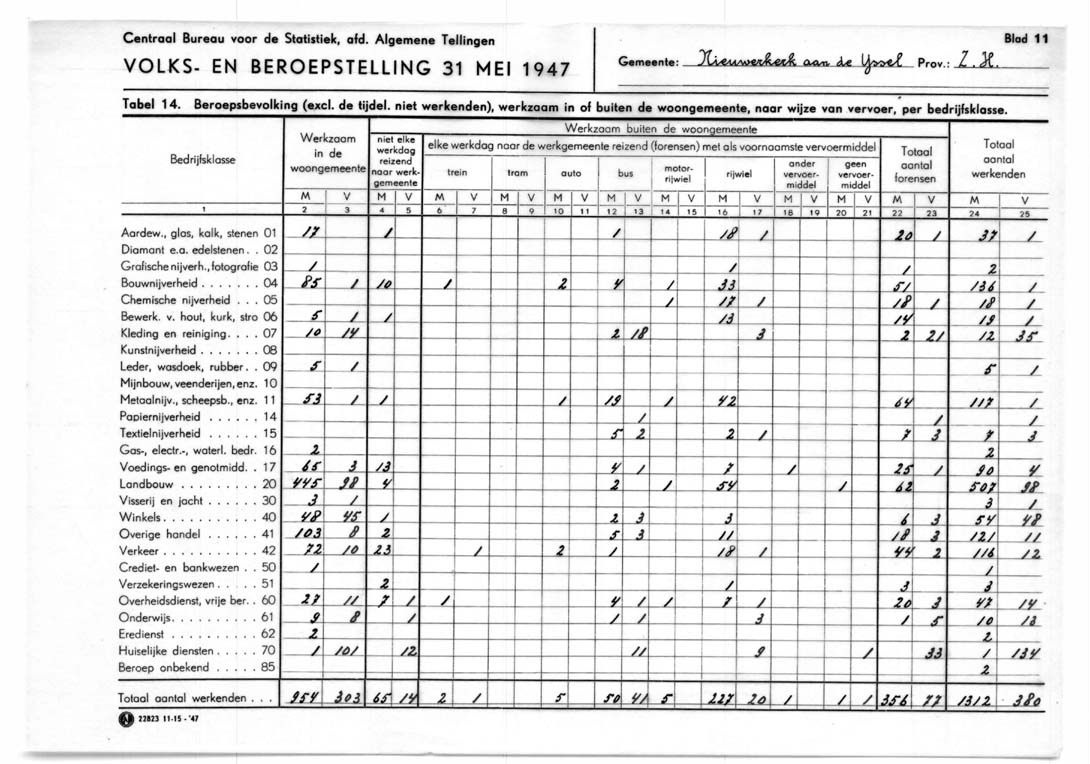 Centraal Bureau voor de Statistiek, afd. Algemene Tellingen
Blad 11
VOLKS- EN BEROEPSTELLING 31 MEI 1947
Gemeente: Nieuwerkerk aan de Yssel Prov.: Z.H.
Tabel 14. Beroepsbevolking (excl. de tijdel. niet werkenden), werkzaam in of buiten de woongemeente, naar wijze van vervoer, per bedrijfsklasse.
Bedrijfsklasse
Werkzaam in de woongemeente
Werkzaam buiten de woongemeente
niet elke werkdag reizend naar werkgemeente
elke werkdag naar de werkgemeente reizend (forensen) met als voornaamste vervoermiddel
trein tram auto bus motor-rijwiel rijwiel ander vervoer-middel geen vervoer-middel
Totaal aantal forensen
Totaal aantal werkenden
M V M V M V M V M V M V M V M V M V M V M V M V
1 2 3 4 5 6 7 8 9 10 11 12 13 14 15 16 17 18 19 20 21 22 23 24 25
Aardew., glas, kalk, stenen 01 17 1 1 18 1 20 1 37 1
Diamant e.a. edelstenen . . 02
Grafische nijverh., fotografie 03 1 1 1 2
Bouwnijverheid . . . . . . . 04 85 1 10 1 2 4 1 33 51 136 1
Chemische nijverheid . . . 05 1 17 1 18 1 18 1
Bewerk. v. hout, kurk, stro 06 5 1 1 13 14 19 1
Kleding en reiniging. . . . 07 10 14 2 18 3 2 21 12 35
Kunstnijverheid . . . . . . . 08
Leder, wasdoek, rubber. . 09 5 1 5 1
Mijnbouw, veenderijen, enz. 10
Metaalnijv., scheepsb., enz. 11 53 1 1 1 19 1 42 64 117 1
Papiernijverheid . . . . . . 14 1 1 1
Textielnijverheid . . . . . . 15 5 2 2 1 7 3 7 3
Gas-, electr.-, waterl. bedr. 16 2 2
Voedings- en genotmidd. . 17 65 3 13 4 1 7 1 25 1 90 4
Landbouw . . . . . . . . . 20 445 98 4 2 1 54 1 62 507 98
Visserij en jacht . . . . . . 30 3 1 3 1
Winkels. . . . . . . . . . . 40 48 45 1 2 3 3 6 3 54 48
Overige handel . . . . . . . 41 103 8 2 5 3 11 18 3 121 11
Verkeer . . . . . . . . . . . 42 72 10 23 1 2 1 18 1 44 2 116 12
Crediet- en bankwezen . . 50 1 1
Verzekeringswezen . . . . . 51 2 1 3 3
Overheidsdienst, vrije ber. . 60 27 11 7 1 1 4 1 1 7 1 20 3 47 14
Onderwijs. . . . . . . . . . 61 9 8 1 1 1 3 1 5 10 13
Eredienst . . . . . . . . . . 62 2 2
Huiselijke diensten . . . . . 70 1 101 12 11 9 1 33 1 134
Beroep onbekend . . . . . 85 2
Totaal aantal werkenden . . . 954 303 65 14 2 1 5 50 41 5 227 20 1 1 1 356 77 1312 380
22823 11-15 - '47